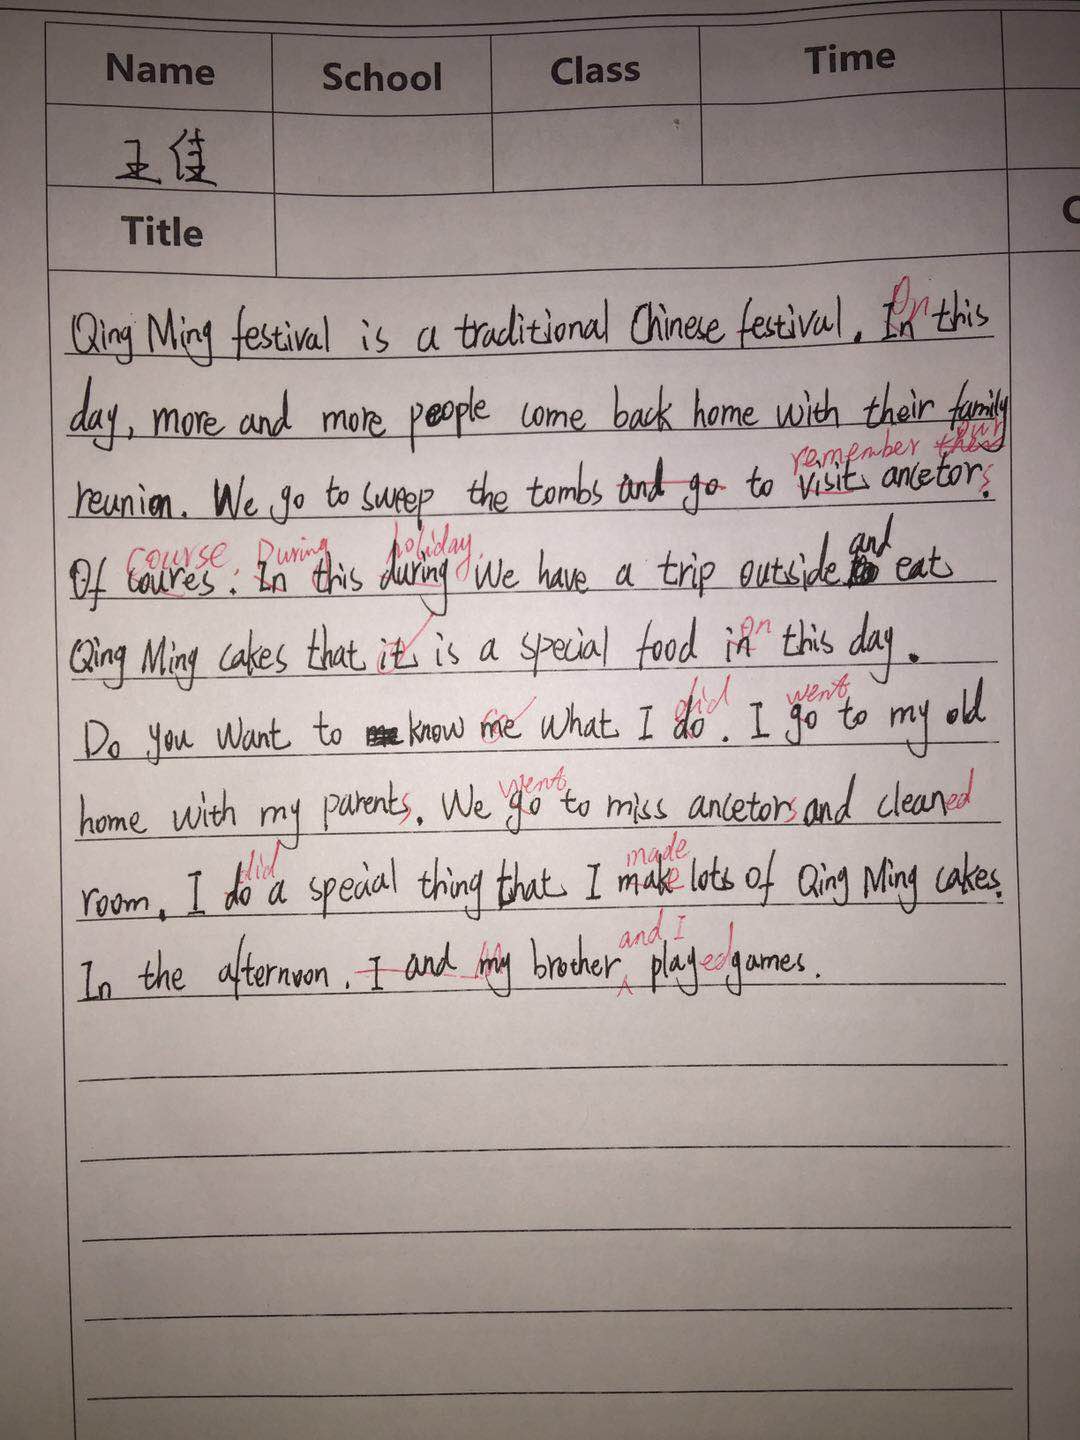 Name School Class Time
王佳
Title C
On
Qing Ming festival is a traditional Chinese festival. In this
day, more and more people come back home with their family
remember their our
reunion. We go to sweep the tombs and go to visit ancetors.
course During holiday and
Of coures. In this during We have a trip outside eat
on
Qing Ming cakes that it is a special food in this day.
did went
Do you want to know me what I do. I go to my old
went
home with my parents. We go to miss ancetors and cleaned
did made
room. I do a special thing that I make lots of Qing Ming cakes.
and I
In the afternoon. I and my brother played games.